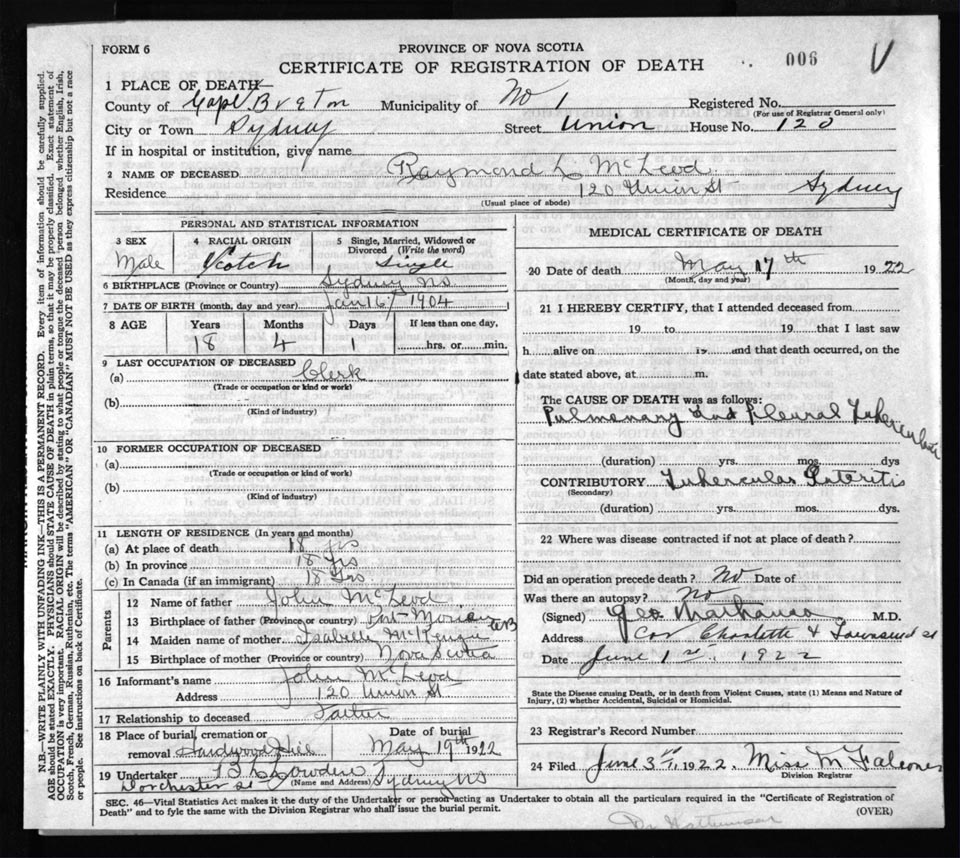 FORM 6
PROVINCE OF NOVA SCOTIA
CERTIFICATE OF REGISTRATION OF DEATH
006
V
1 PLACE OF DEATH
County of Cape Breton Municipality of No 1 Registered No.
(For use of Registrar General only)
City or Town Sydney Street Union House No. 120
If in hospital or institution, give name
2 NAME OF DECEASED Raymond L McLeod
Residence 120 Union St Sydney
(Usual place of abode)
PERSONAL AND STATISTICAL INFORMATION
3 SEX 4 RACIAL ORIGIN 5 Single, Married, Widowed or Divorced (Write the word)
Male Scotch Single
6 BIRTHPLACE (Province or Country) Sydney NS
7 DATE OF BIRTH (month, day and year) Jan 16 1904
8 AGE Years Months Days If less than one day,
18 4 1 hrs. or min.
9 LAST OCCUPATION OF DECEASED
(a) Clerk
(Trade or occupation or kind or work)
(b)
(Kind of industry)
10 FORMER OCCUPATION OF DECEASED
(a)
(Trade or occupation or kind of work)
(b)
(Kind of industry)
11 LENGTH OF RESIDENCE (In years and months)
(a) At place of death 18 yrs
(b) In province 18 yrs
(c) In Canada (if an immigrant) 18 yrs
Parents
12 Name of father John McLeod
13 Birthplace of father (Province or country) Port Morien CB
14 Maiden name of mother Isabell McKenzie
15 Birthplace of mother (Province or country) Nova Scotia
16 Informant's name John McLeod
Address 120 Union St
17 Relationship to deceased Father
18 Place of burial, cremation or Date of burial
removal Hardwood Hill May 19th 1922
19 Undertaker Sydney NS
Dorchester St (Name and Address)
MEDICAL CERTIFICATE OF DEATH
20 Date of death May 17th 1922
(Month, day and year)
21 I HEREBY CERTIFY, that I attended deceased from
19 to 19 that I last saw
h alive on 19 and that death occurred, on the
date stated above, at m.
The CAUSE OF DEATH was as follows:
Pulmonary and Pleural Tuberculosis
(duration) yrs. mos. dys
CONTRIBUTORY Tubercular Enteritis
(Secondary)
(duration) yrs. mos. dys.
22 Where was disease contracted if not at place of death?
Did an operation precede death? No Date of
Was there an autopsy? No
(Signed) Geo M.D.
Address Cor Charlotte & Townsend St
Date June 1st, 1922
State the Disease causing Death, or in death from Violent Causes, state (1) Means and Nature of
Injury, (2) whether Accidental, Suicidal or Homicidal.
23 Registrar's Record Number
24 Filed June 3rd, 1922 Miss M Falconer
Division Registrar
SEC. 46—Vital Statistics Act makes it the duty of the Undertaker or person acting as Undertaker to obtain all the particulars required in the "Certificate of Registration of
Death" and to fyle the same with the Division Registrar who shall issue the burial permit.
(OVER)
N.B.—WRITE PLAINLY WITH UNFADING INK—THIS IS A PERMANENT RECORD. Every item of information should be carefully supplied.
AGE should be stated EXACTLY. PHYSICIANS should STATE CAUSE OF DEATH in plain terms, so that it may be properly classified. Exact statement of
OCCUPATION is very important. RACIAL ORIGIN will be described by stating to what people or tongue the deceased person belonged, whether English, Irish,
Scotch, French, German, Russian, Ruthenian, etc. The terms "AMERICAN" OR "CANADIAN" MUST NOT BE USED as they express citizenship but not a race
or people. See instructions on back of Certificate.